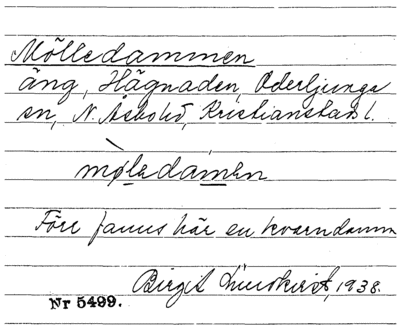 Mölledammen
äng, Hägnaden, Oderljunga
sn, N. Åsbohd, Kristianstads l.
møledamen
Förr fanns här en kvarndamm
Birgit Lundkvist, 1938.
Nr 5499.